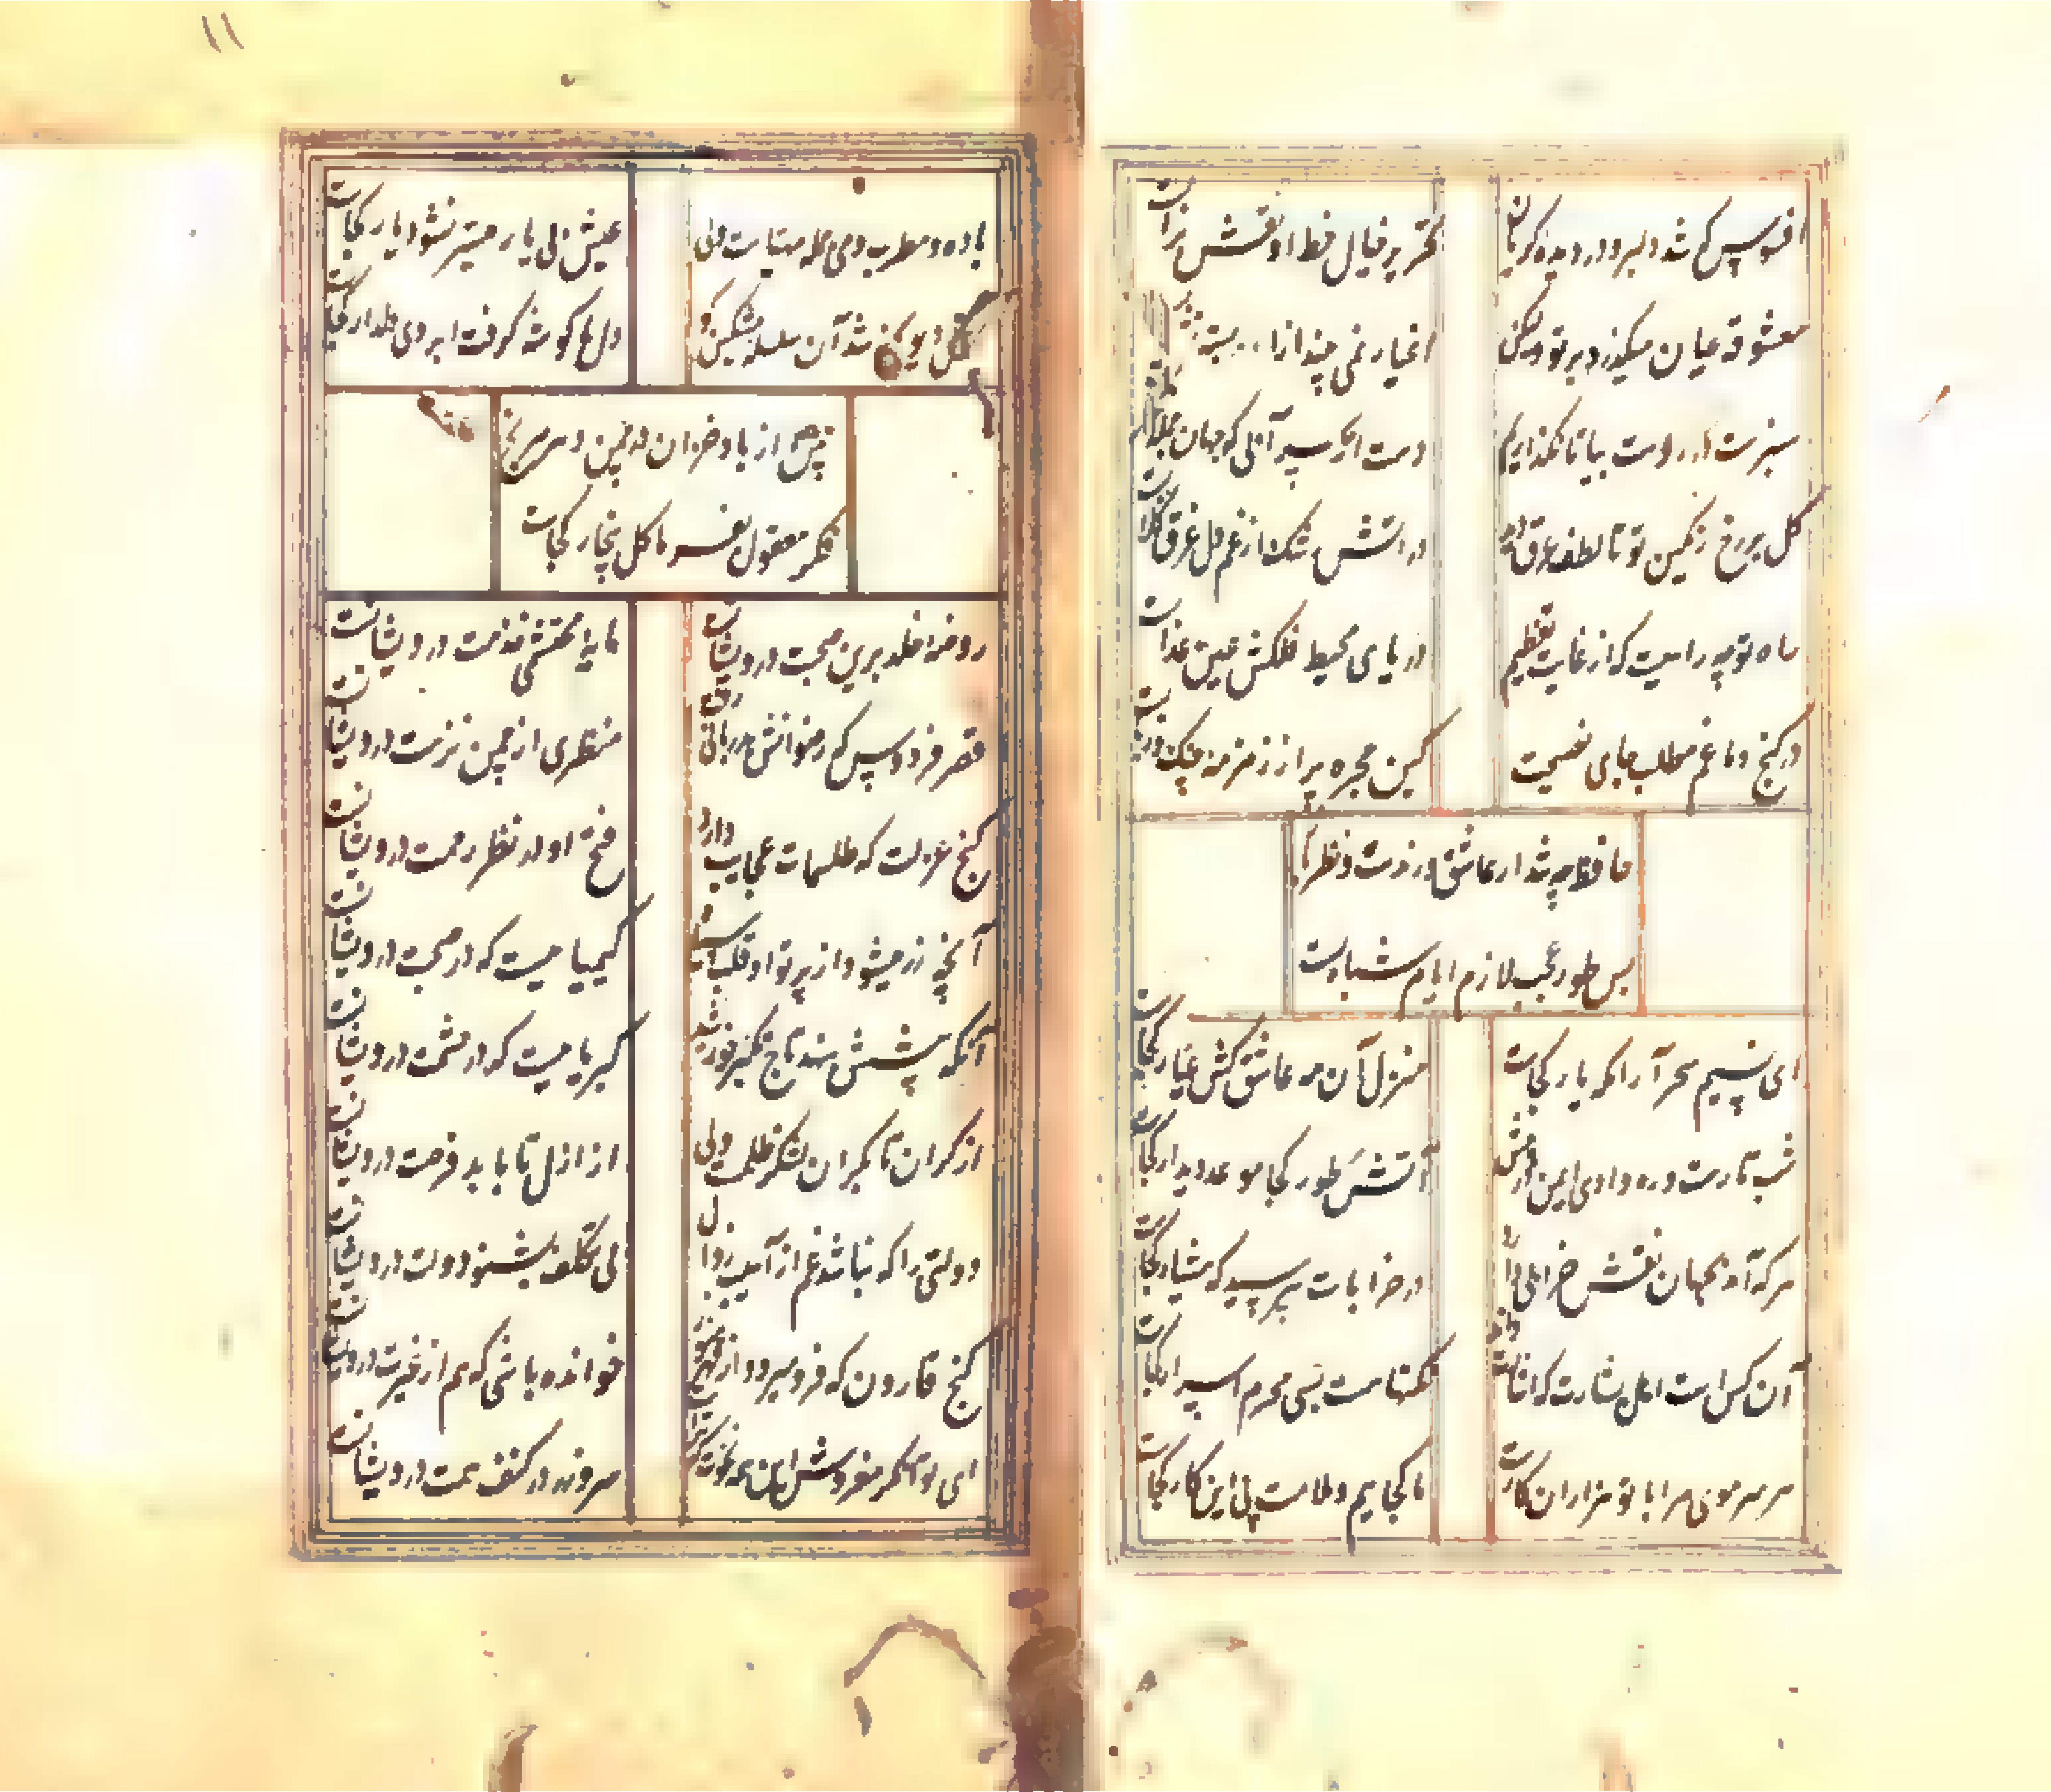 ۱۱
افسوس که شد دلبر و در دیده گریان
تحریر خیال خط او نقش بر آبست
معشوقه عیان میگذرد بر تو ولیکن
اغیار نمی بیند ازان بسته
سبزست در و دشت بیا تا نگذاریم
دست از سر آبی که جهان جمله
گل بر رخ رنگین تو تا لطف عرق دید
در آتش رشک از غم دل غرق گلابست
راه تو چه راهیست که از غایت تعظیم
دریای محیط فلکش عین
در کنج دماغم مطلب جای نصیحت
کین حجره پر از زمزمه چنک و ربابست
حافظ چه شد ار عاشق و رندست و نظرباز
بس طور عجب لازم ایام شبابست
ای نسیم سحر آرامکه یار کجاست
منزل آن مه عاشق کش عیار کجاست
شب تارست و ره وادی ایمن در پیش
آتش طور کجا موعد دیدار کجاست
هر که آمد بجهان نقش خرابی دارد
در خرابات مپرسید که هشیار کجاست
آن کس است اهل بشارت که اشارت داند
نکتها هست بسی محرم اسرار کجاست
هر سر موی مرا با تو هزاران کارست
ما کجاییم و ملامت پی این کار کجاست
باده و مطرب و می جمله مهیاست ولی
عیش بی یار میسر نشود یار کجاست
دیوانه شد آن سلسله مشکین کو
دل ما گوشه گرفت ابروی دلدار کجاست
از باد خزان در چمن دهر مرنج
فکر معقول بفرما کل بیخار کجاست
روضه خلد برین صحبت درویشانست
مایه محتشمی خدمت درویشانست
قصر فردوس که رضوانش بدربانی رفت
منظری از چمن نزهت درویشانست
کنج عزلت که طلسمات عجایب دارد
فتح او در نظر رحمت درویشانست
آنچه زر میشود از پرتو او قلب سیاه
کیمیاییست که در صحبت درویشانست
آنکه پیشش بنهد تاج تکبر خورشید
کبریاییست که در حشمت درویشانست
از کران تا بکران لشکر ظلمست ولی
از ازل تا بابد فرصت درویشانست
دولتی را که نباشد غم از آسیب زوال
بی تکلف بشنو دولت درویشانست
کنج قارون که فرو میرود از قهر هنوز
خوانده باشی که هم از غیرت درویشانست
ای توانکر مفروش این همه نخوت که ترا
سر و زر در کنف همت درویشانست